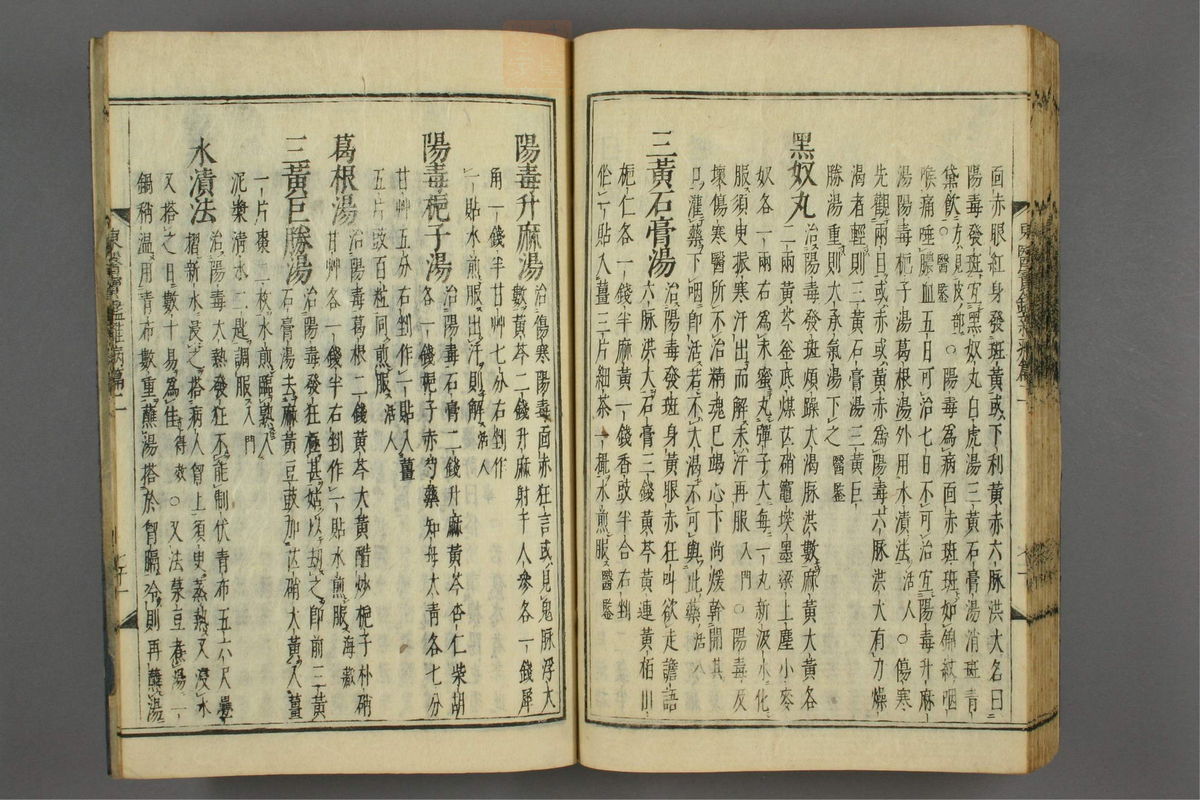 面赤眼紅身發斑黃或下利黃赤六脉洪大名曰
陽毒發斑宜黑奴丸白虎湯三黃石膏湯消斑青
黛飲方見皮部醫鑑○陽毒爲病面赤斑斑如錦紋咽
喉痛唾膿血五日可治七日不可治宜陽毒升麻
湯陽毒梔子湯葛根湯外用水漬法活人○傷寒
先觀兩目或赤或黃赤爲陽毒六脉洪大有力燥
渴者輕則三黃石膏湯三黃巨
勝湯重則大承氣湯下之醫鑑
黑奴丸治陽毒發斑煩躁大渴脉洪數麻黃大黃各
二兩黃芩釜底煤芒硝竈埃墨梁上塵小麥
奴各一兩右爲末蜜丸彈子大每一丸新汲水化
服須臾振寒汗出而解未汗再服入門○陽毒及
壞傷寒醫所不治精魂已竭心下尚煖幹開其
口灌藥下咽卽活若不大渴不可與此藥活人
三黃石膏湯治陽毒發斑身黃眼赤狂叫欲走譫語
六脉洪大石膏三錢黃芩黃連黃栢山
梔仁各一錢半麻黃一錢香豉半合右剉
作一貼入薑三片細茶一撮水煎服醫鑑
陽毒升麻湯治傷寒陽毒面赤狂言或見鬼脉浮大
數黃芩二錢升麻射干人參各一錢犀
角一錢半甘艸七分右剉作
一貼水煎服出汗則解活人
陽毒梔子湯治陽毒石膏二錢升麻黃芩杏仁柴胡
各一錢梔子赤芍藥知母大青各七分
甘艸五分右剉作一貼入薑
五片豉百粒同煎服活人
葛根湯治陽毒葛根二錢黃芩大黃醋炒梔子朴硝
甘艸各一錢半右剉作一貼水煎服海藏
三黃巨勝湯治陽毒發狂極甚姑以劫之卽前三黃
石膏湯去麻黃豆豉加芒硝大黃入薑
一片棗二枚水煎臨熟入
泥漿清水二匙調服入門
水漬法治陽毒太熱發狂不能制伏青布五六尺疊
摺新水浸之搭病人胷上須臾蒸熱又浸水
又搭之日數十易爲佳得效○又法菉豆煮湯一
鍋稍温用青布數重蘸湯搭於胷膈冷則再蘸湯
東醫寶鑑雜病篇二